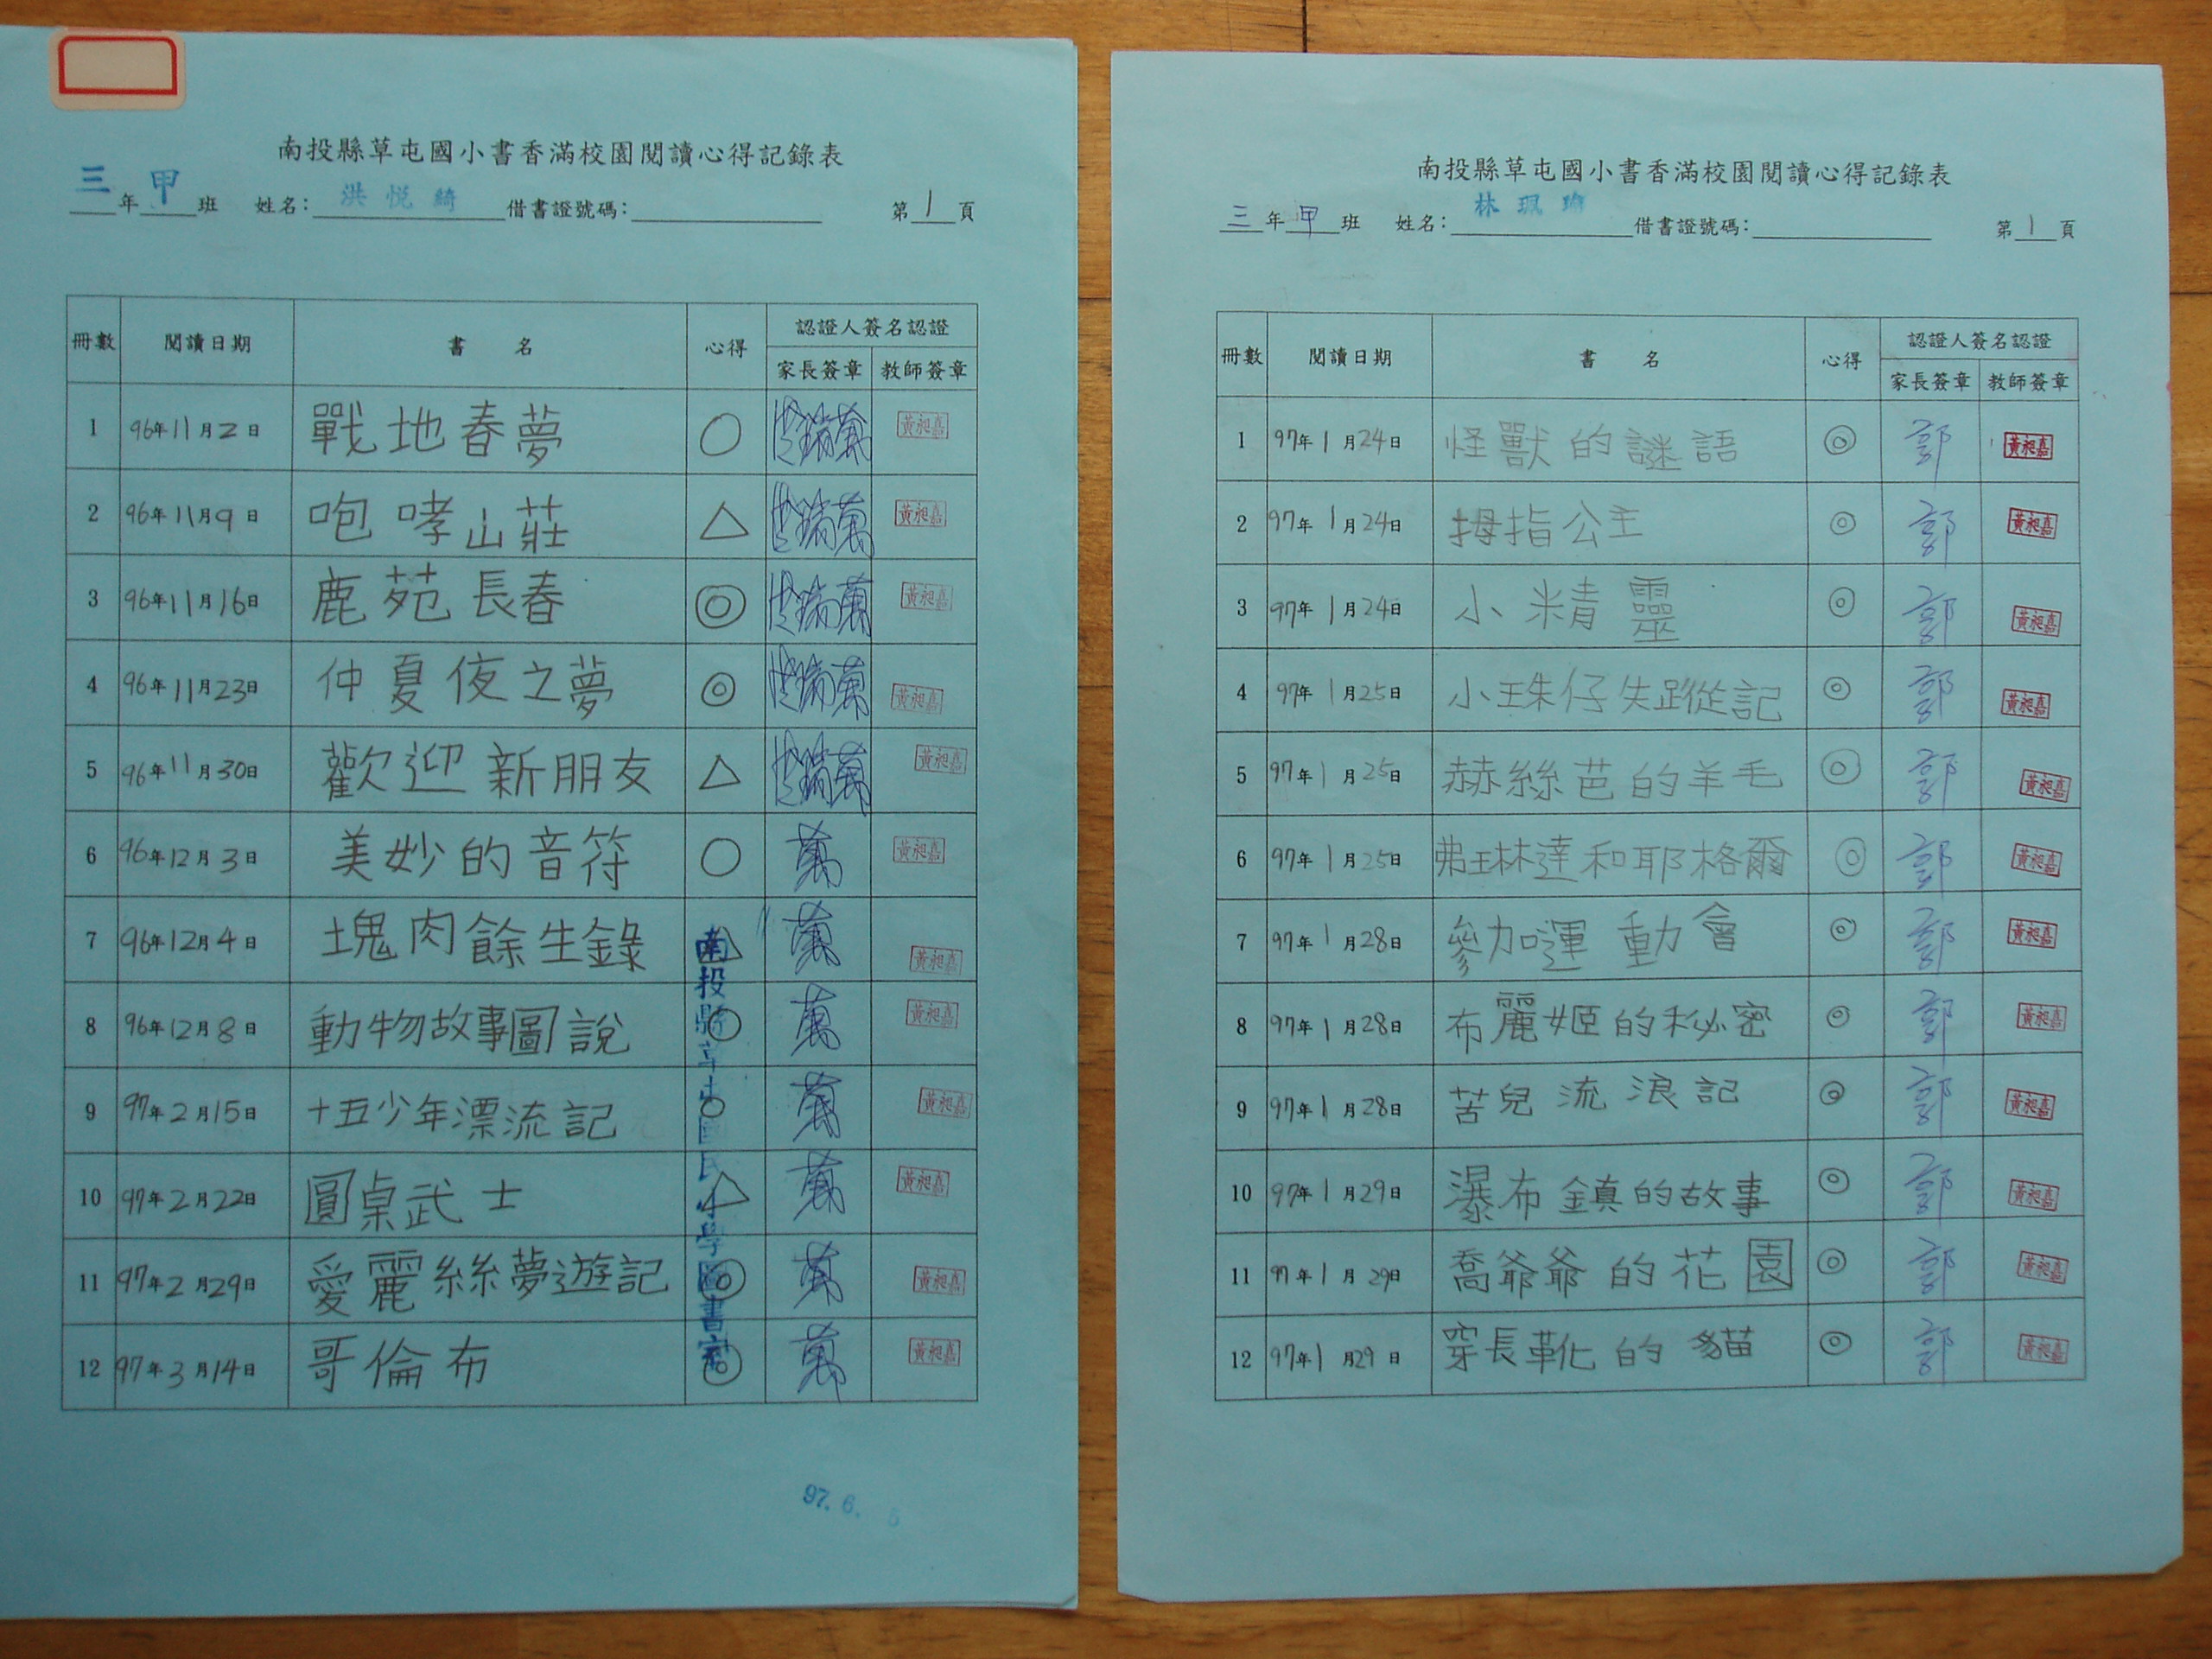 南投縣草屯國小書香滿校園閱讀心得記錄表
三年甲班 姓名：洪悅綺 借書證號碼： 第1頁
冊數 閱讀日期 書 名 心得 認證人簽名認證
家長簽章 教師簽章
1 96年11月2日 戰地春夢 ○ 黃昶嘉
2 96年11月9日 咆哮山莊 △ 黃昶嘉
3 96年11月16日 鹿苑長春 ◎ 黃昶嘉
4 96年11月23日 仲夏夜之夢 ◎ 黃昶嘉
5 96年11月30日 歡迎新朋友 △ 黃昶嘉
6 96年12月3日 美妙的音符 ○ 萬 黃昶嘉
7 96年12月4日 塊肉餘生錄 △ 萬 黃昶嘉
8 96年12月8日 動物故事圖說 ○ 萬 黃昶嘉
9 97年2月15日 十五少年漂流記 ○ 萬 黃昶嘉
10 97年2月22日 圓桌武士 △ 萬 黃昶嘉
11 97年2月29日 愛麗絲夢遊記 ◎ 萬 黃昶嘉
12 97年3月14日 哥倫布 ◎ 萬 黃昶嘉
南投縣草屯國民小學圖書室
97. 6. 5
南投縣草屯國小書香滿校園閱讀心得記錄表
三年甲班 姓名：林珮 借書證號碼： 第1頁
冊數 閱讀日期 書 名 心得 認證人簽名認證
家長簽章 教師簽章
1 97年1月24日 怪獸的謎語 ◎ 郭 黃昶嘉
2 97年1月24日 拇指公主 ◎ 郭 黃昶嘉
3 97年1月24日 小精靈 ◎ 郭 黃昶嘉
4 97年1月25日 小珠仔失蹤記 ◎ 郭 黃昶嘉
5 97年1月25日 赫絲芭的羊毛 ◎ 郭 黃昶嘉
6 97年1月25日 弗琳達和耶格爾 ◎ 郭 黃昶嘉
7 97年1月28日 參加運動會 ◎ 郭 黃昶嘉
8 97年1月28日 布麗姬的秘密 ◎ 郭 黃昶嘉
9 97年1月28日 苦兒流浪記 ◎ 郭 黃昶嘉
10 97年1月29日 瀑布鎮的故事 ◎ 郭 黃昶嘉
11 97年1月29日 喬爺爺的花園 ◎ 郭 黃昶嘉
12 97年1月29日 穿長靴的貓 ◎ 郭 黃昶嘉